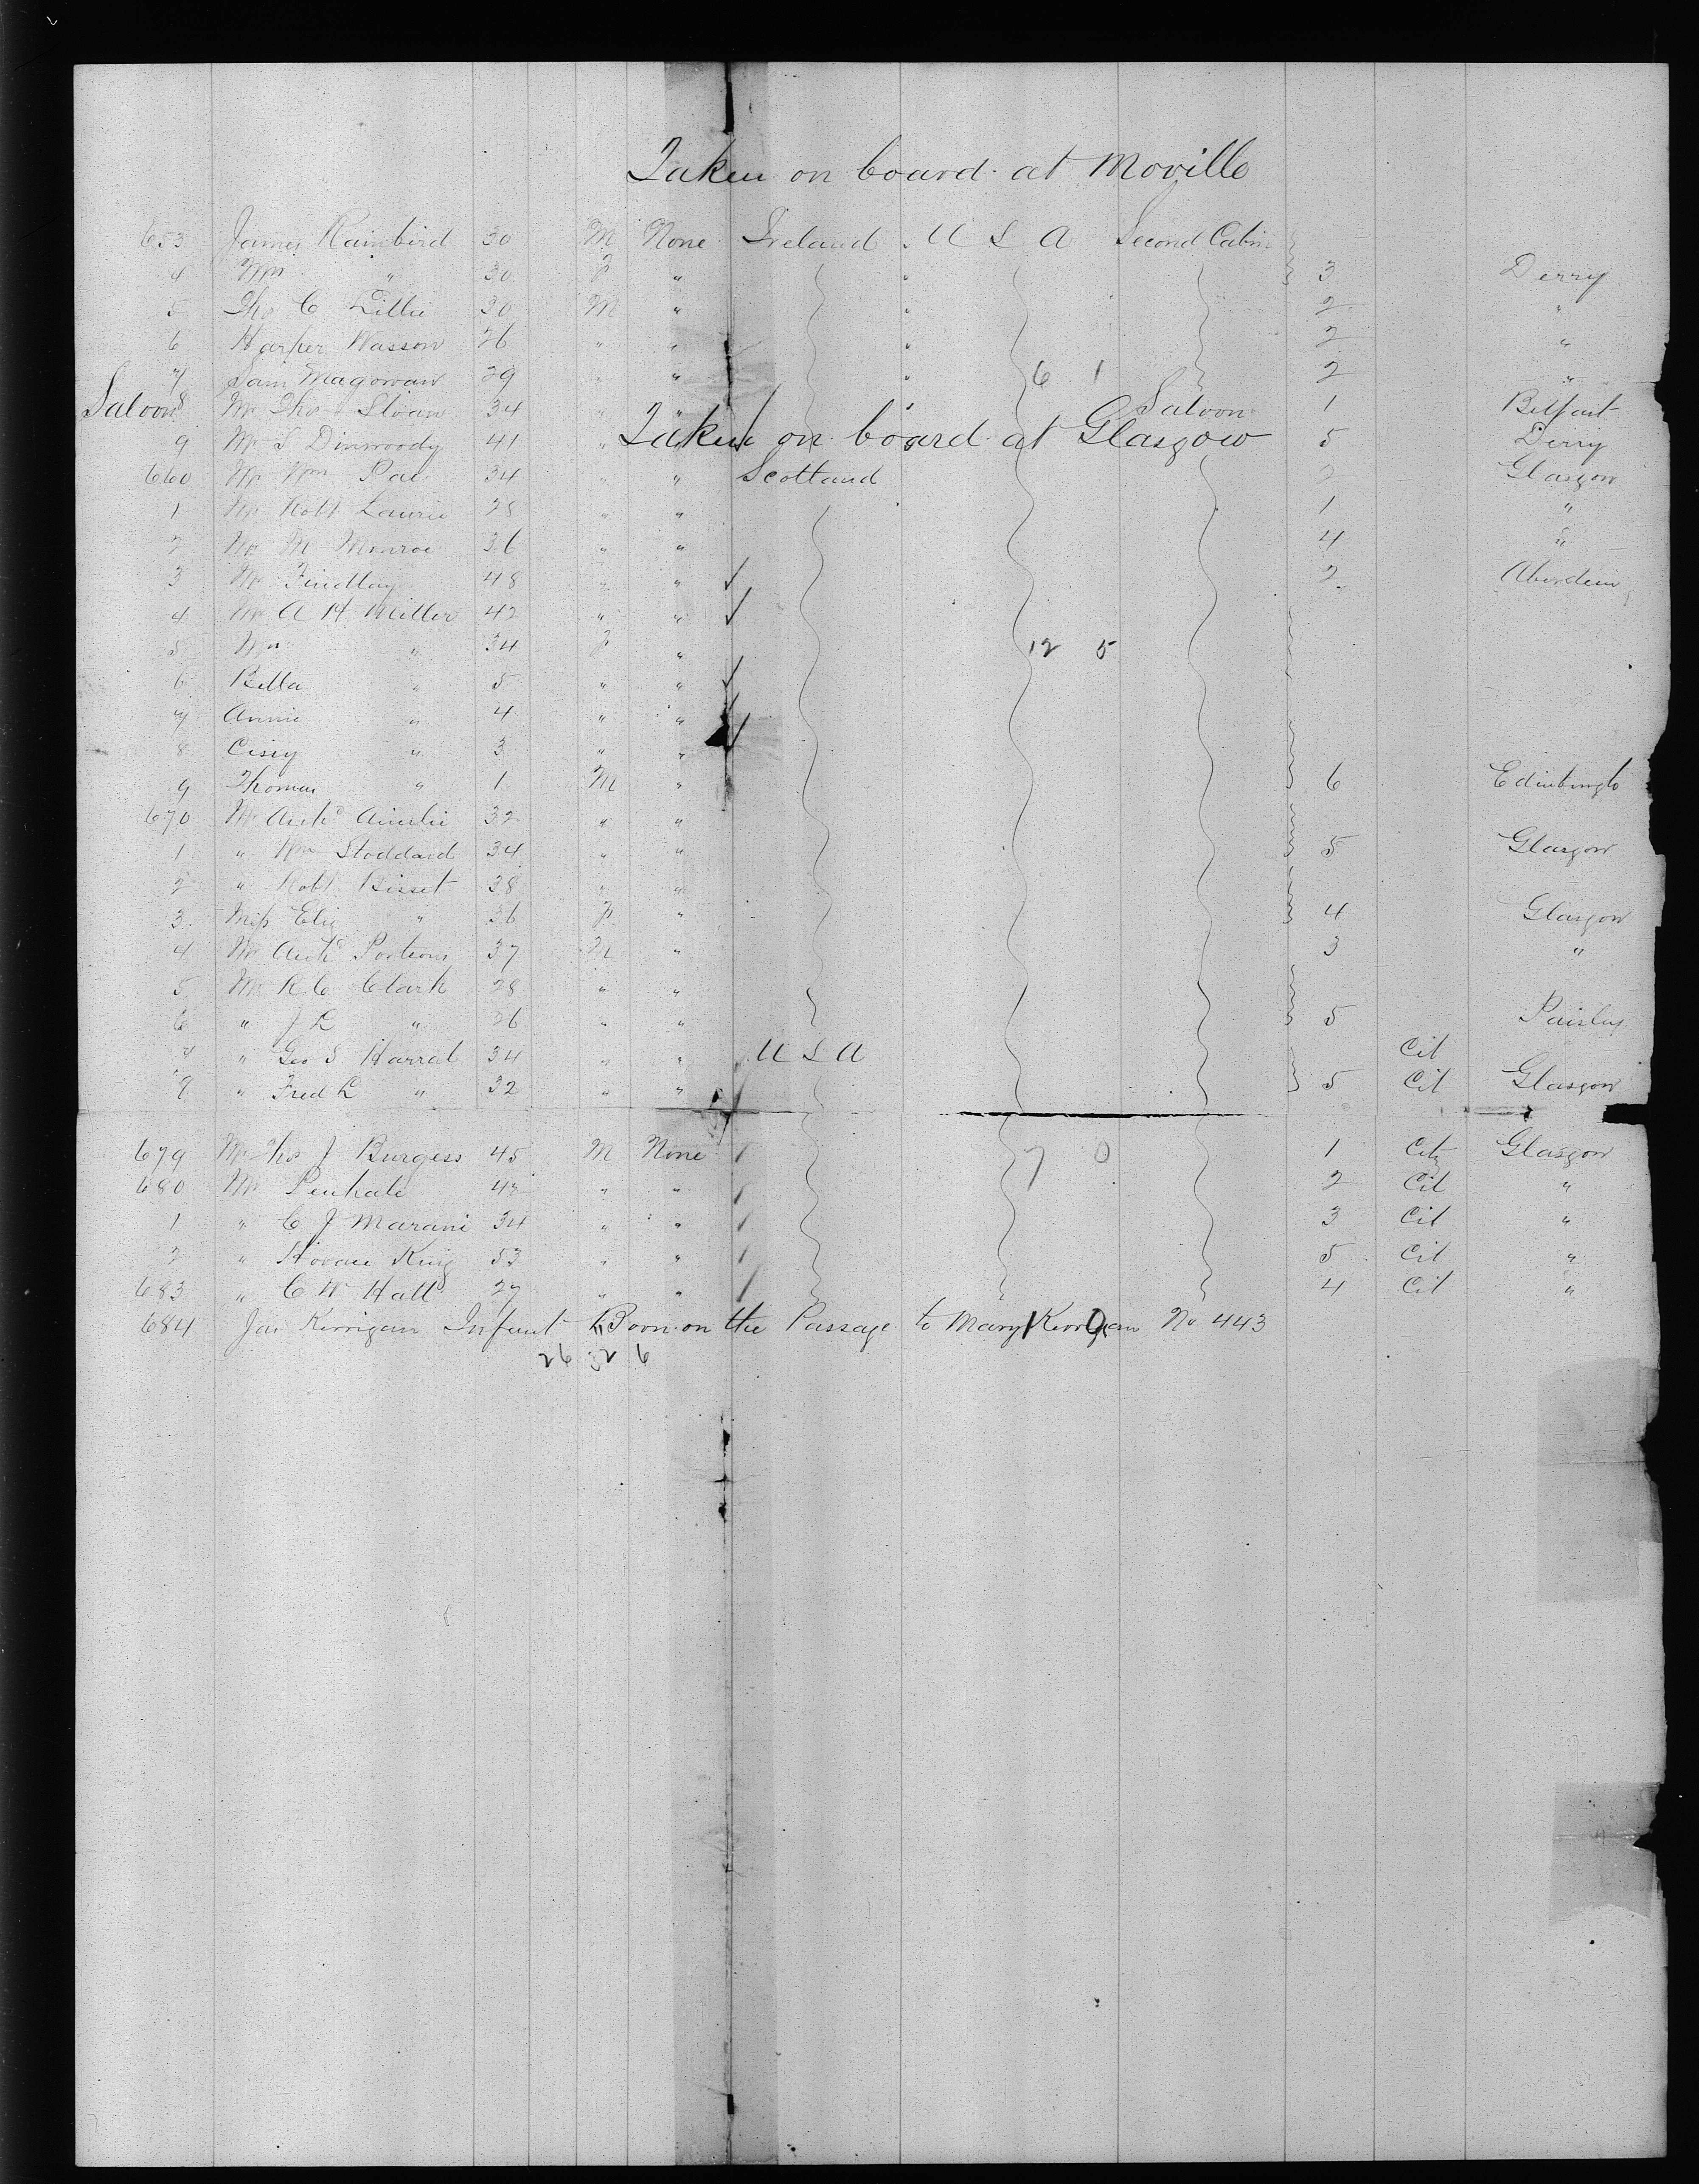 Taken on board at Moville
653 James Rainbird 30 M None Ireland U S A Second Cabin
4 Mrs " 30 F " " 3 Derry
5 Tho C Lillie 30 M " " 2 "
6 Harper Wasson 26 " " " 2 "
7 Sam Magowan 29 " " " 6 1 2 "
Saloon 8 Mr Tho Sloan 34 " " " Saloon 1 Belfast
Taken on board at Glasgow
9 Mr S Dinwoody 41 " " 5 Derry
660 Mr Wm 34 " " Scotland 2 Glasgow
1 Mr Robt Laurie 28 " " 1 "
2 Mr M Monroe 36 " " 4 "
3 Mr Findlay 48 " " 2 Aberdeen
4 Mr A H Miller 42 " "
5 Mrs " 34 F " 12 5
6 Bella " 5 " "
7 Annie " 4 " "
8 Cissy " 3 " "
9 Thomas " 1 M " 6 Edinburgh
670 Mr Archd Ainslie 32 " "
1 " Wm Stoddard 34 " " 5 Glasgow
2 " Robt Bisset 38 " "
3 Miss Eliz " 36 F " 4 Glasgow
4 Mr Archd Porteous 37 M " 3 "
5 Mr R C Clark 28 " "
6 " J L " 26 " " 5 Paisley
7 " Geo S Harral 34 " " U S A Cit
" Fred L " 32 " " 5 Cit Glasgow
679 Mr Tho J Burgess 45 M None 7 0 1 Cit Glasgow
680 Mr Penhale " " 2 Cit "
1 " C J Marani 34 " " 3 Cit "
2 " Horace King 53 " " 5 Cit "
683 " C W Hall 27 " " 4 Cit "
684 Jas Kerrigan Infant Born on the Passage to Mary Kerrigan No 443
26 32 6